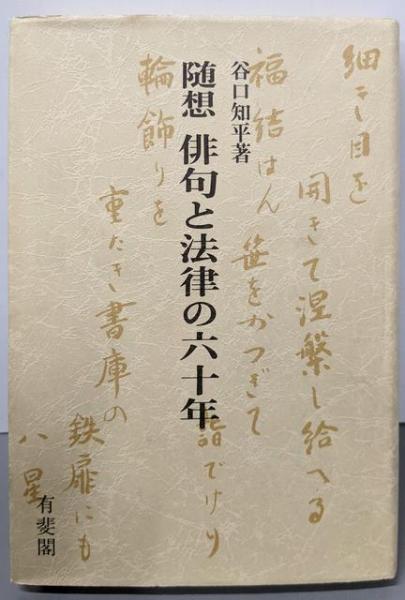 谷口知平著
随想 俳句と法律の六十年
有斐閣
細き目を
開きて涅槃し給へる
福結はん 笹をかつぎて
詣でけり
輪飾りを
重たき書庫の
鉄扉にも
八星